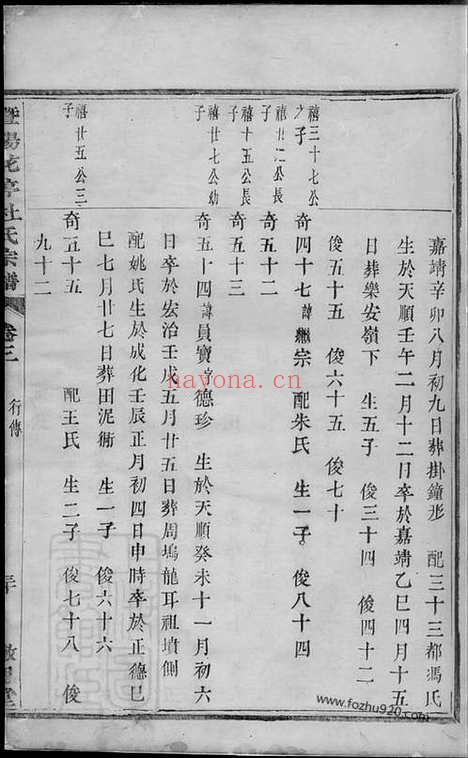 嘉靖辛卯八月初九日葬掛鐘形 配三十三都馮氏
生於天順壬午二月十二日卒於嘉靖乙巳四月十五
日葬樂安嶺下 生五子 俊三十四 俊四十二
俊五十五 俊六十五 俊七十
禧三十七公
之子
奇四十七諱繼宗 配朱氏 生一子 俊八十四
禧廿二公長
子
奇五十二
禧十五公長
子
奇五十三
禧廿七公幼
子
奇五十四諱員寶字德珍 生於天順癸未十一月初六
日卒於宏治壬戌五月廿五日葬周塢龍耳祖墳側
配姚氏生於成化壬辰正月初四日申時卒於正德巳
巳七月廿七日葬田泥衕 生一子 俊六十六
禧廿五公三
子
奇五十五 配王氏 生二子 俊七十八 俊
九十二
暨陽花亭杜氏宗譜
卷三 行傳
nayona.cn
www.fozhu920.com